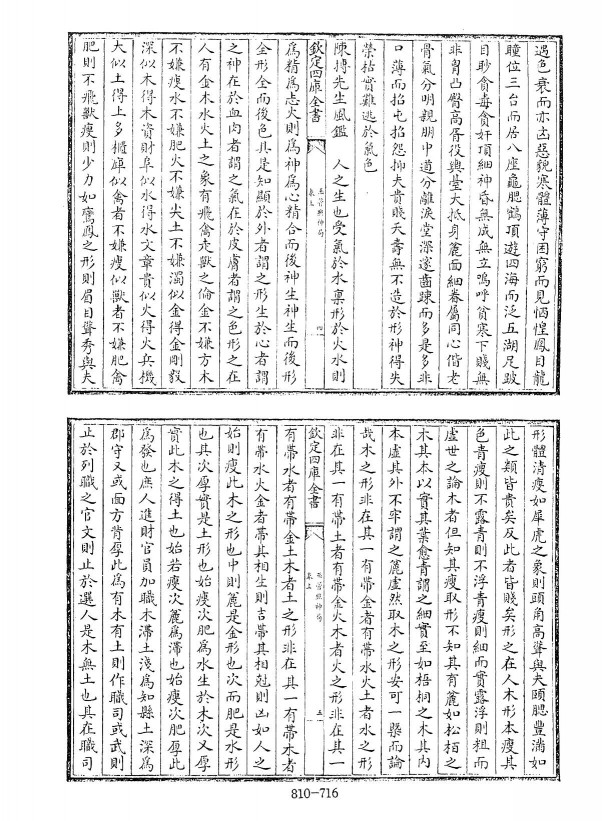 遇色衰而亦出惡貌寒體薄守困窮而見恓惶鳳目龍
瞳位三台而居八座龜腮鶴頂遊四海而泛五湖足跛
目眇貪毒貪奸頂細神昏無成無立嗚呼貧寒下賤無
非胷凸臀高胥役輿臺大抵身麄面細眷屬同心偕老
骨氣分明親朋中道分離淚堂深邃齒踈而多是多非
口薄而招屯招怨抑夫貴賤夭壽無不造於形神得失
榮枯實難逃於氣色
陳摶先生風鑑 人之生也受氣於水稟形於火水則
欽定四庫全書
玉管照神局
卷上
四
為精為志火則為神為心精合而後神生神生而後形
全形全而後色具是知顯於外者謂之形生於心者謂
之神在於血肉者謂之氣在於皮膚者謂之色形之在
人有金木水火土之象有飛禽走獸之倫金不嫌方木
不嫌瘦水不嫌肥火不嫌尖土不嫌濁似金得金剛毅
深似木得木資財阜似水得水文章貴似火得火兵機
大似土得土多櫃庫似禽者不嫌瘦似獸者不嫌肥禽
肥則不飛獸瘦則少力如鸞鳳之形則眉目聳秀與夫
形體清瘦如犀虎之象則頭角高聳與夫頤腮豐滿如
此之類皆貴矣反此者皆賤矣形之在人木形本瘦其
色青瘦則不露青則不浮青瘦則細而實露浮則粗而
虛世之論木者但知其瘦取形不知其有麄如松栢之
木其本以實其葉愈青謂之細實至如梧桐之木其內
本虛其外不牢謂之麄虛然取木之形安可一槩而論
哉木之形非在其一有帶金者有帶水火土者水之形
非在其一有帶土者有帶金火木者火之形非在其一
欽定四庫全書
玉管照神局
卷上
五
有帶水者有帶金土木者土之形非在其一有帶木者
有帶水火金者帶其相生則吉帶其相尅則凶如人之
始則瘦此木之形也中則麄是金形也次而肥是水形
也其次厚實是土形也始瘦次肥為水生於木次又厚
實此木之得土也始若瘦次麄為滯也始瘦次肥厚此
為發也庶人進財官員加職木滯土淺為知縣土深為
郡守又或面方背厚此為有木有土則作職司或武則
止於列職之官文則止於選人是木無土也其在職司
810-716